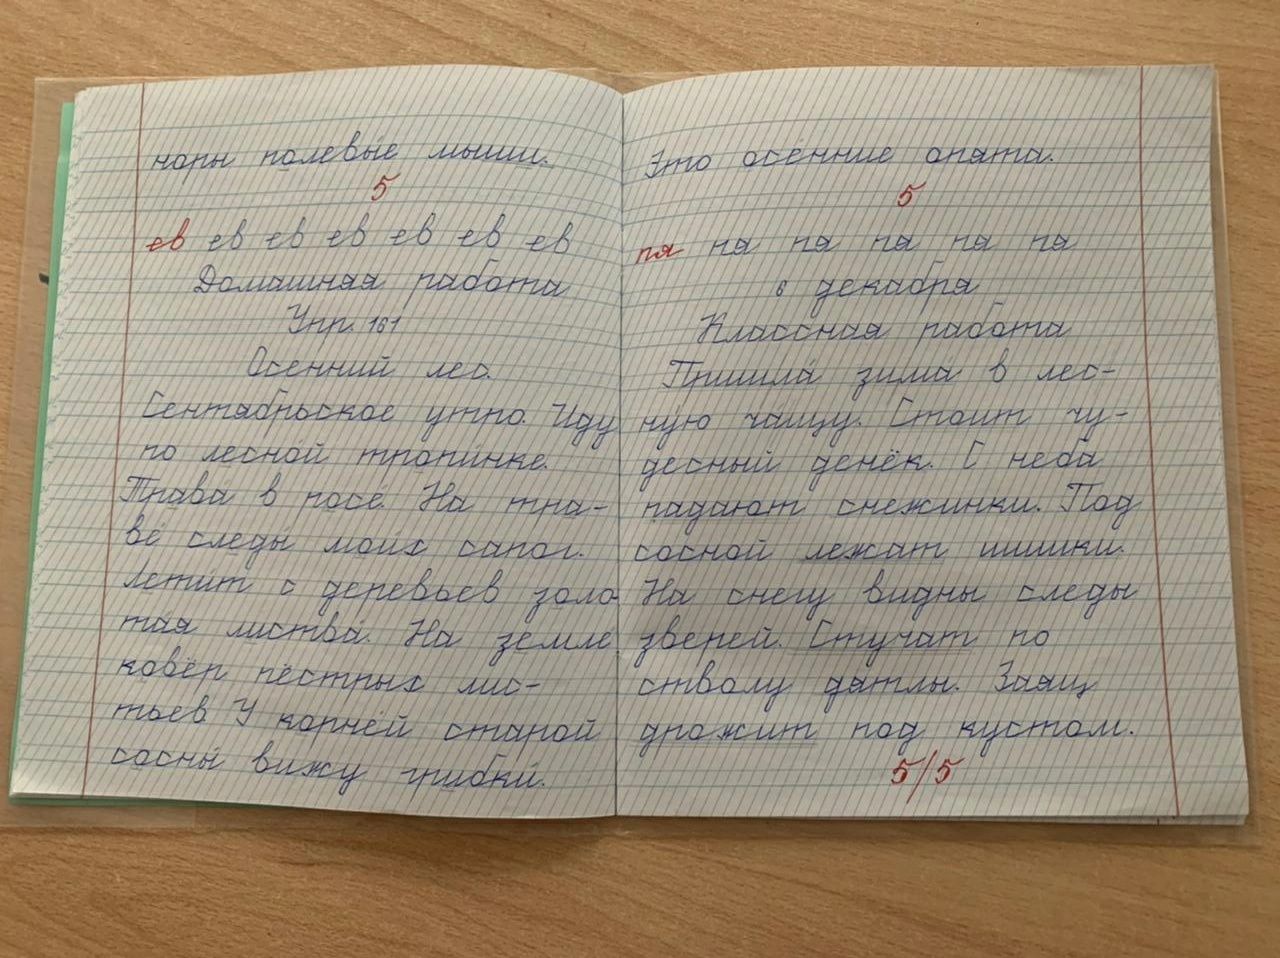 норы полевые мыши.
5
ев ев ев ев ев ев ев
Домашняя работа
Упр. 161
Осенний лес.
Сентябрьское утро. Иду
по лесной тропинке.
Трава в росе. На тра-
ве следы моих сапог.
Летит с деревьев золо-
тая листва. На земле
ковёр пёстрых лис-
тьев. У корней старой
сосны вижу грибки.
Это осенние опята.
5
пя пя пя пя пя пя
6 декабря
Классная работа
Пришла зима в лес-
ную чащу. Стоит чу-
десный денёк. С неба
падают снежинки. Под
сосной лежат шишки.
На снегу видны следы
зверей. Стучат по
стволу дятлы. Заяц
дрожит под кустом.
5/5